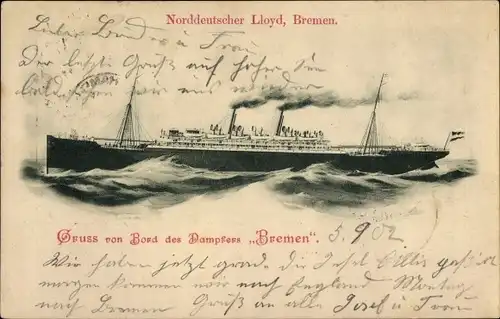 Norddeutscher Lloyd, Bremen.
Lieber Bruder u Frau
Der letzte Gruß auf hoher See
wir uns wieder
Gruss von Bord des Dampfers „Bremen“. 5.9.02
Wir haben jetzt grade die Insel passirt
morgen kommen wir nach England Montag
nach Bremen Gruß an alle Josef u Frau